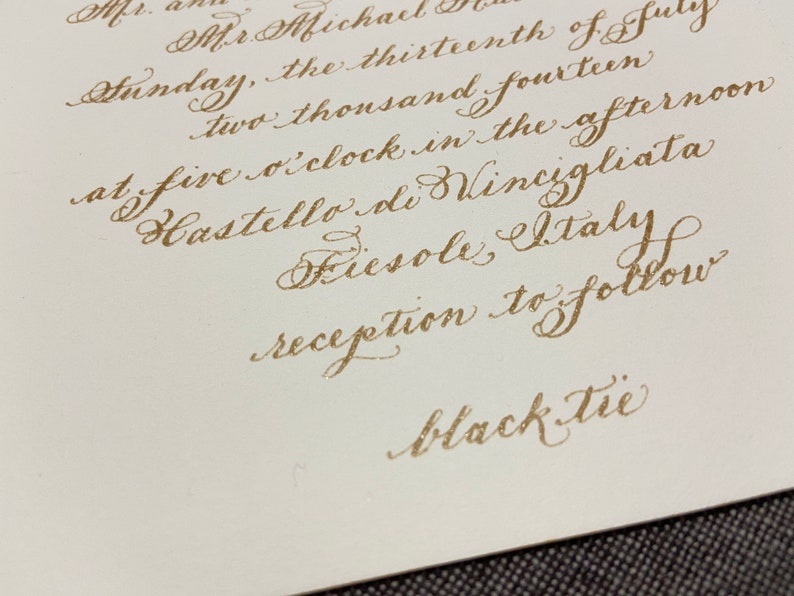 Mr. and
Mr. Michael
Sunday, the thirteenth of July
two thousand fourteen
at five o'clock in the afternoon
Castello di Vincigliata
Fiesole, Italy
reception to follow
black tie